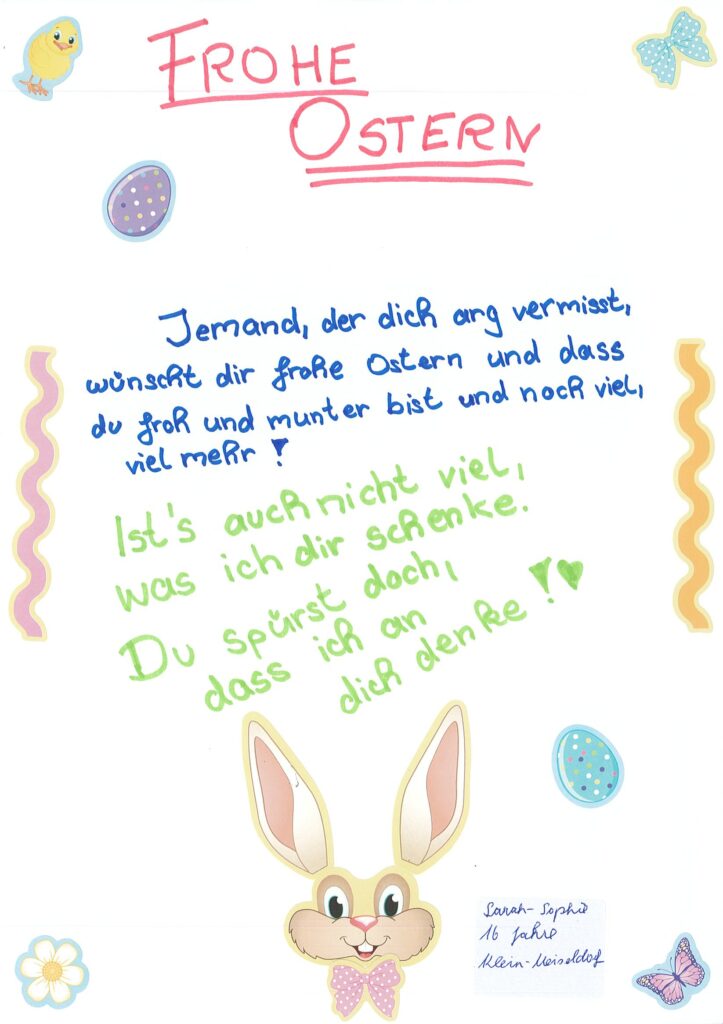 FROHE
OSTERN
Jemand, der dich arg vermisst,
wünscht dir frohe Ostern und dass
du froh und munter bist und noch viel,
viel mehr!
Ist's auch nicht viel,
was ich dir schenke.
Du spürst doch,
dass ich an
dich denke!
Sarah-Sophie
16 Jahre
Klein-Meiseldorf